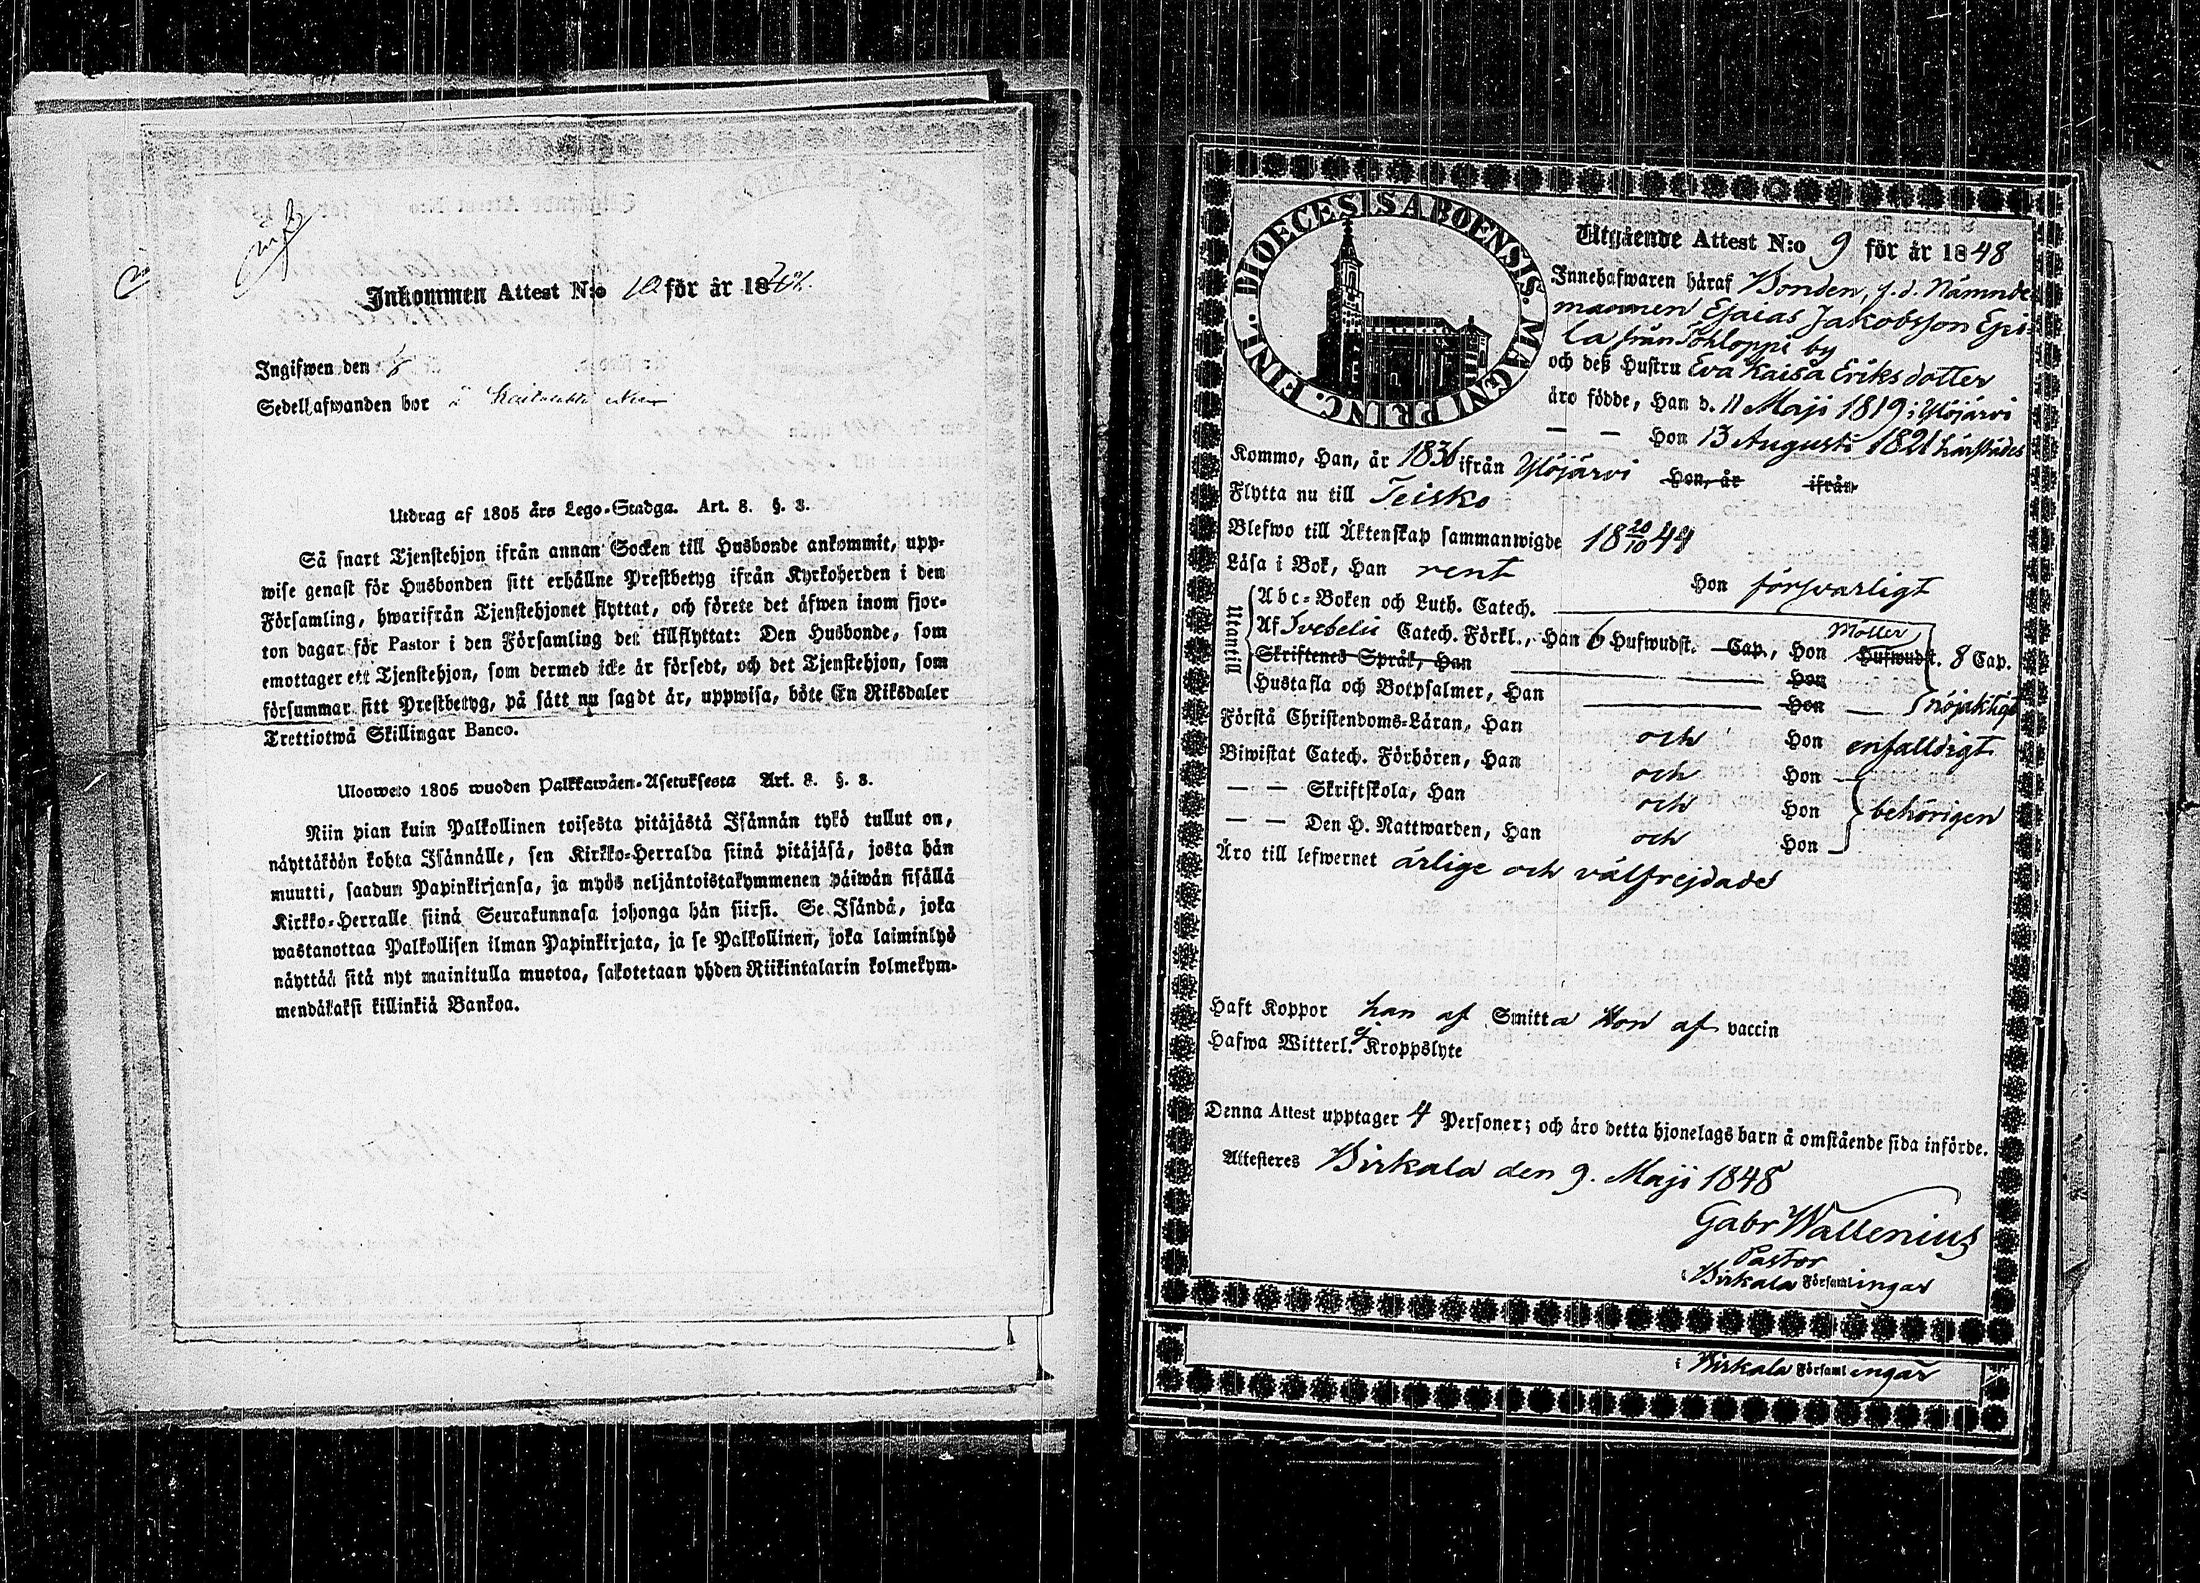 Inkommen Attest N:o 10 för år 18
Ingifwen den
Sedellafwanden bor å
Utdrag af 1805 års Lego-Stadga. Art. 8. §. 3.
Så snart Tjenstehjon ifrån annan Socken till Husbonde ankommit, upp-
wise genast för Husbonden sitt erhållne Prestbetyg ifrån Kyrkoherden i den
Församling, hwarifrån Tjenstehjonet flyttat, och förete det äfwen inom fjor-
ton dagar för Pastor i den Församling det tillflyttat: Den Husbonde, som
emottager ett Tjenstehjon, som dermed icke är försedt, och det Tjenstehjon, som
försummar sitt Prestbetyg, på sätt nu sagdt är, uppwisa, böte En Riksdaler
Trettiotwå Skillingar Banco.
Ulosweto 1805 wuoden Palkkawäen-Asetuksesta Art. 8. §. 3.
Niin pian kuin Palkollinen toisesta pitäjästä Isännän tykö tullut on,
näyttäköön kohta Isännälle, sen Kirkko-Herralda siinä pitäjäsä, josta hän
muutti, saadun Papinkirjansa, ja myös neljäntoistakymmenen päiwän sisällä
Kirkko-Herralle siinä Seurakunnasa johonga hän siirsi. Se Isändä, joka
wastanottaa Palkollisen ilman Papinkirjata, ja se Palkollinen, joka laiminlyö
näyttää sitä nyt mainitulla muotoa, sakotetaan yhden Riikintalarin kolmekym-
mendäkaksi killinkiä Bankoa.
DIOECESIS ABOENSIS. MAGNI PRINC. FINL.
Utgående Attest N:o 9 för år 1848
Innehafwaren häraf Bonden, f.d. Nämnde-
mannen Esaias Jakobsson Epi-
la från Tohloppi by
och deß Hustru Eva Kaisa Eriksdotter
äro födde, Han d. 11 Maji 1819 i Ylöjärvi
— — Hon 13 Augusti 1821 härstädes
Kommo, Han, år 1836 ifrån Ylöjärvi Hon, år ifrån
Flytta nu till Teisko
Blefwo till Äktenskap sammanwigde 18 20/10 44
Läsa i Bok, Han rent Hon försvarligt
Utantill
Abc-Boken och Luth. Catech.
Af Svebelii Catech. Förkl., Han 6 Hufwudst. Cap., Hon Möller Hufwudst. 8 Cap.
Skriftenes Språk, Han Hon
Hustafla och Botpsalmer, Han Hon nöjaktigt
Förstå Christendoms-Läran, Han och Hon enfalldigt
Biwistat Catech. Förhören, Han och Hon
— — Skriftskola, Han och Hon behörigen
— — Den H. Nattwarden, Han och Hon
Äro till lefwernet ärlige och välfrejdade
Haft Koppor han af Smitta Hon af vaccin
Hafwa Witterl. ej Kroppslyte
Denna Attest upptager 4 Personer; och äro detta hjonelags barn å omstående sida införde.
Attesteres Birkala den 9. Maji 1848
Gabr Wallenius
Pastor
i Birkala Församlingar
i Birkala Församlingar